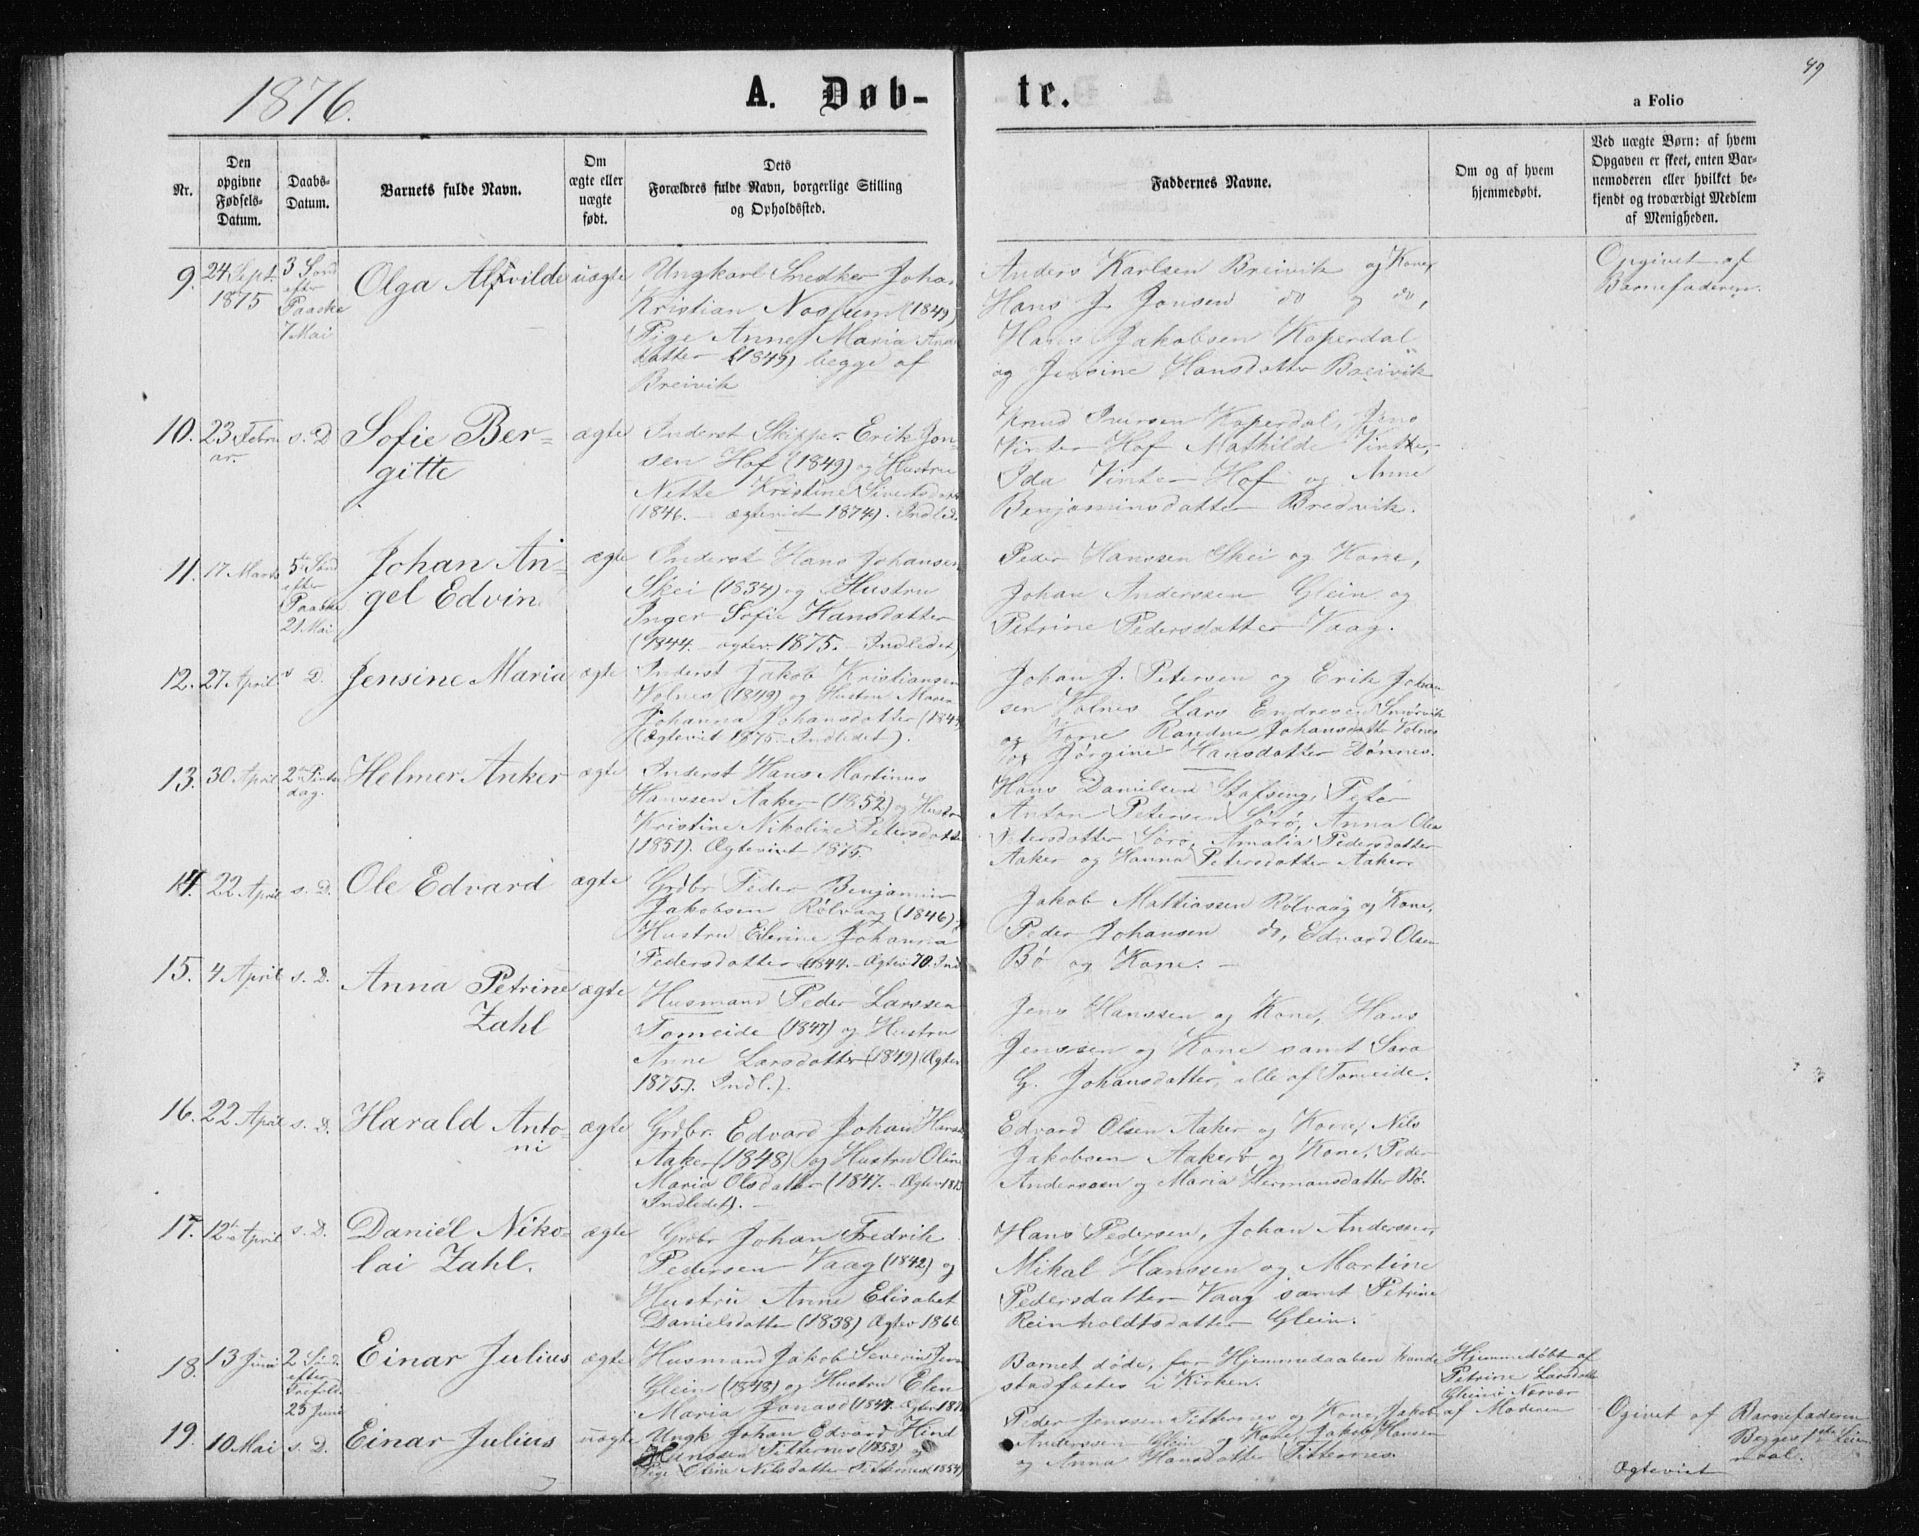 1876.
A. Døb-
te.
49
a Folio
Nr.
Den
opgivne
Fødsels-
Datum.
Daabs-
Datum.
Barnets fulde Navn.
Om
ægte eller
uægte
født.
Dets
Forældres fulde Navn, borgerlige Stilling
og Opholdssted.
Faddernes Navne.
Om og af hvem
hjemmedøbt.
Ved uægte Børn: af hvem
Opgaven er skeet, enten Bar-
nemoderen eller hvilket be-
kjendt og troværdigt Medlem
af Menigheden.
9.
24 Sept.
1875
3 Sønd
efter
Paaske
7 Mai
Olga Alfvilde
uægte
Ungkarl Snedker Johan
Kristian Nostum (1849)
Pige Anne Maria
datter (1849) begge af
Breivik
Anders Karlsen Breivik og Kone,
Hans J. Jonsen do og do,
Hans Jakobsen Koperdal
og Jensine Hansdatter Breivik
Opgivet af
Barnefaderen.
10.
23 Febru
ar.
s. D
Sofie Ber-
gitte
ægte
Inderst Skipper Erik Jon-
sen Hof (1849) og Hustru
Nette Kristine Sivertsdatt
(1846. – ægteviet 1874). Indled.
Knud Iversen Koperdal, Jens
Vinter Hof Mathilde Vinter,
Ida Vinter Hof og Anne
Benjaminsdatter Bredvik.
11.
17 Marts
5te Sønd
efter
Paaske
21 Mai
Johan An-
gel Edvin
ægte
Inderst Hans Johansen
Skei (1834) og Hustru
Inger Sofie Hansdatter
(1844. – ægtev. 1875. – Indledet)
Peder Hanssen Skei og Kone,
Johan Anderssen Glein og
Petrine Pedersdatter Vaag.
12.
27 April
s D.
Jensine Maria
ægte
Inderst Jakob Kristiansen
Volnes (1849) og Hustru Maren
Johanna Johansdatter (1849
(Ægteviet 1875 – Indledet).
Johan J. Petersen og Erik Johan
sen Volnes Lars Endresen Smørvik
og Kone Randine Johansdatter Volnes
og Jørgine Hansdatter Dønnes.
13.
30 April
2den Pintse
dag.
Helmer Anker
ægte
Inderst Hans Martinus
Hanssen Aaker (1852) og Hustr
Kristine Nikoline Petersdatter
(1851). Ægteviet 1875.
Hans Danielsen Stafseng, Peter
Anton Petersen Sørø, Anna Olea
Petersdatter Sørø, Amalia Pedersdatter
Aaker og Hanna Petersdatter Aaker.
14.
22 April
s. D.
Ole Edvard
ægte
Grdbr Peder Benjamin
Jakobsen Rølvaag (1846) og
Hustru Elerine Johanna
Pedersdatter (1844. – Ægtev 70 Ind
Jakob Mathiassen Rølvaag og Kone,
Peder Johansen do, Edvard Olsen
Bø og Kone. –
15.
4 April
s. D.
Anna Petrine
Zahl
ægte
Husmand Peder Larssen
Tomeide (1847) og Hustru
Anne Larsdatter (1849) Ægtev
1875). Indl.).
Jens Hanssen og Kone, Hans
Jenssen og Kone samt Sara
G. Johansdatter, alle af Tomeide.
16.
22 April
s. D.
Harald Anto-
ni
ægte
Grdbr. Edvard Johan Hanse
Aaker (1848) og Hustru Oline
Maria Olsdatter (1847. – Ægtev 1873
Indledet). –
Edvard Olsen Aaker og Kone, Nils
Jakobsen Aakerø og Kone, Peder
Anderssen og Maria Hermansdatter Bø.
17.
12te April
s. D.
Daniel Niko-
lai Zahl.
ægte
Grdbr Johan Fredrik
Pedersen Vaag (1842) og
Hustru Anne Elisabet
Danielsdatter (1838) Ægtev 186
Hans Pedersen, Johan Anderssen,
Mikal Hanssen og Martine
Pedersdatter Vaag samt Petrine
Reinholdtsdatter Glein.
18.
13 Juni
2 Sønd.
efter
Trefold.
25 Juni
Einar Julius
ægte
Husmand Jakob Severin Jens
Glein (1848) og Hustru Elen
Maria Jonasd (1847. Ægtev 18
Barnet døde, før Hjemmedaaben kunde
stadfæstes i Kirken.
Hjemmedøbt af
Petrine Larsdatt
af Moderen
19.
10 Mai
s. D.
Einar Julius
uægte
Ungk Johan Edvard Hind
Henssen Titternes (1853) og
Pige Elina Nilsdatter Titternes (1854)
Peder Jenssen Titternes og Kone, Jakob
Anderssen Glein og Kone, Jakob Hansen
og Anna Hansdatter Titternes.
Ogivet af Barnefaderen
Begges 1ste Leier
maal.
Ægteviet